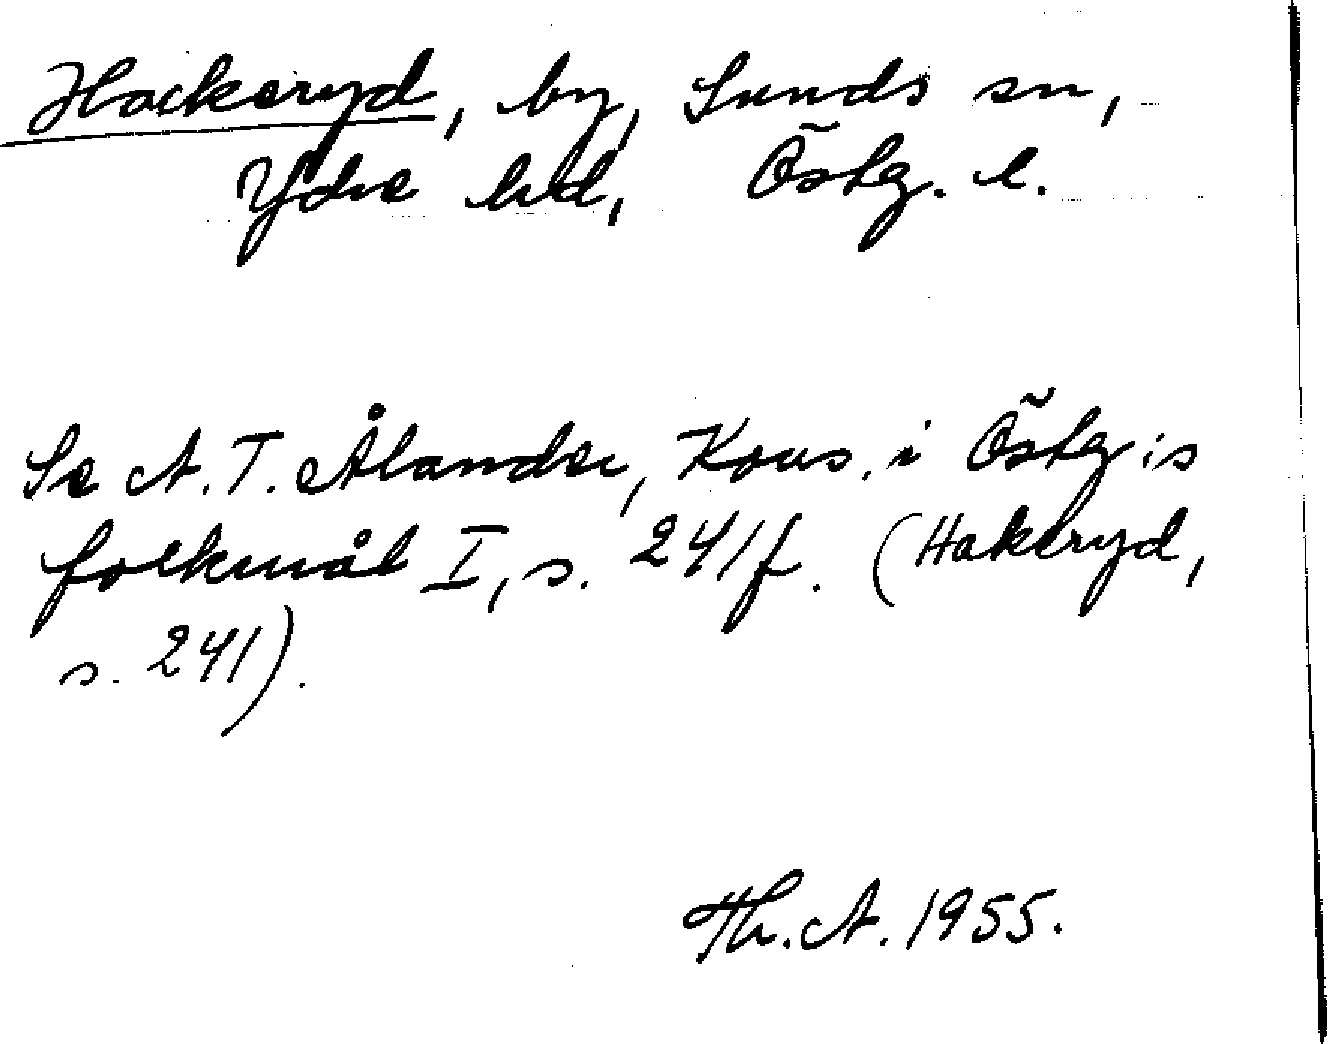 Hackeryd, by, Sunds sn,
Ydre hd, Östg. l.
Se A. T. Ålander, Kons. i Östg:s
folkmål I, s. 241 f. (Hakeryd,
s. 241).
Th. A. 1955.